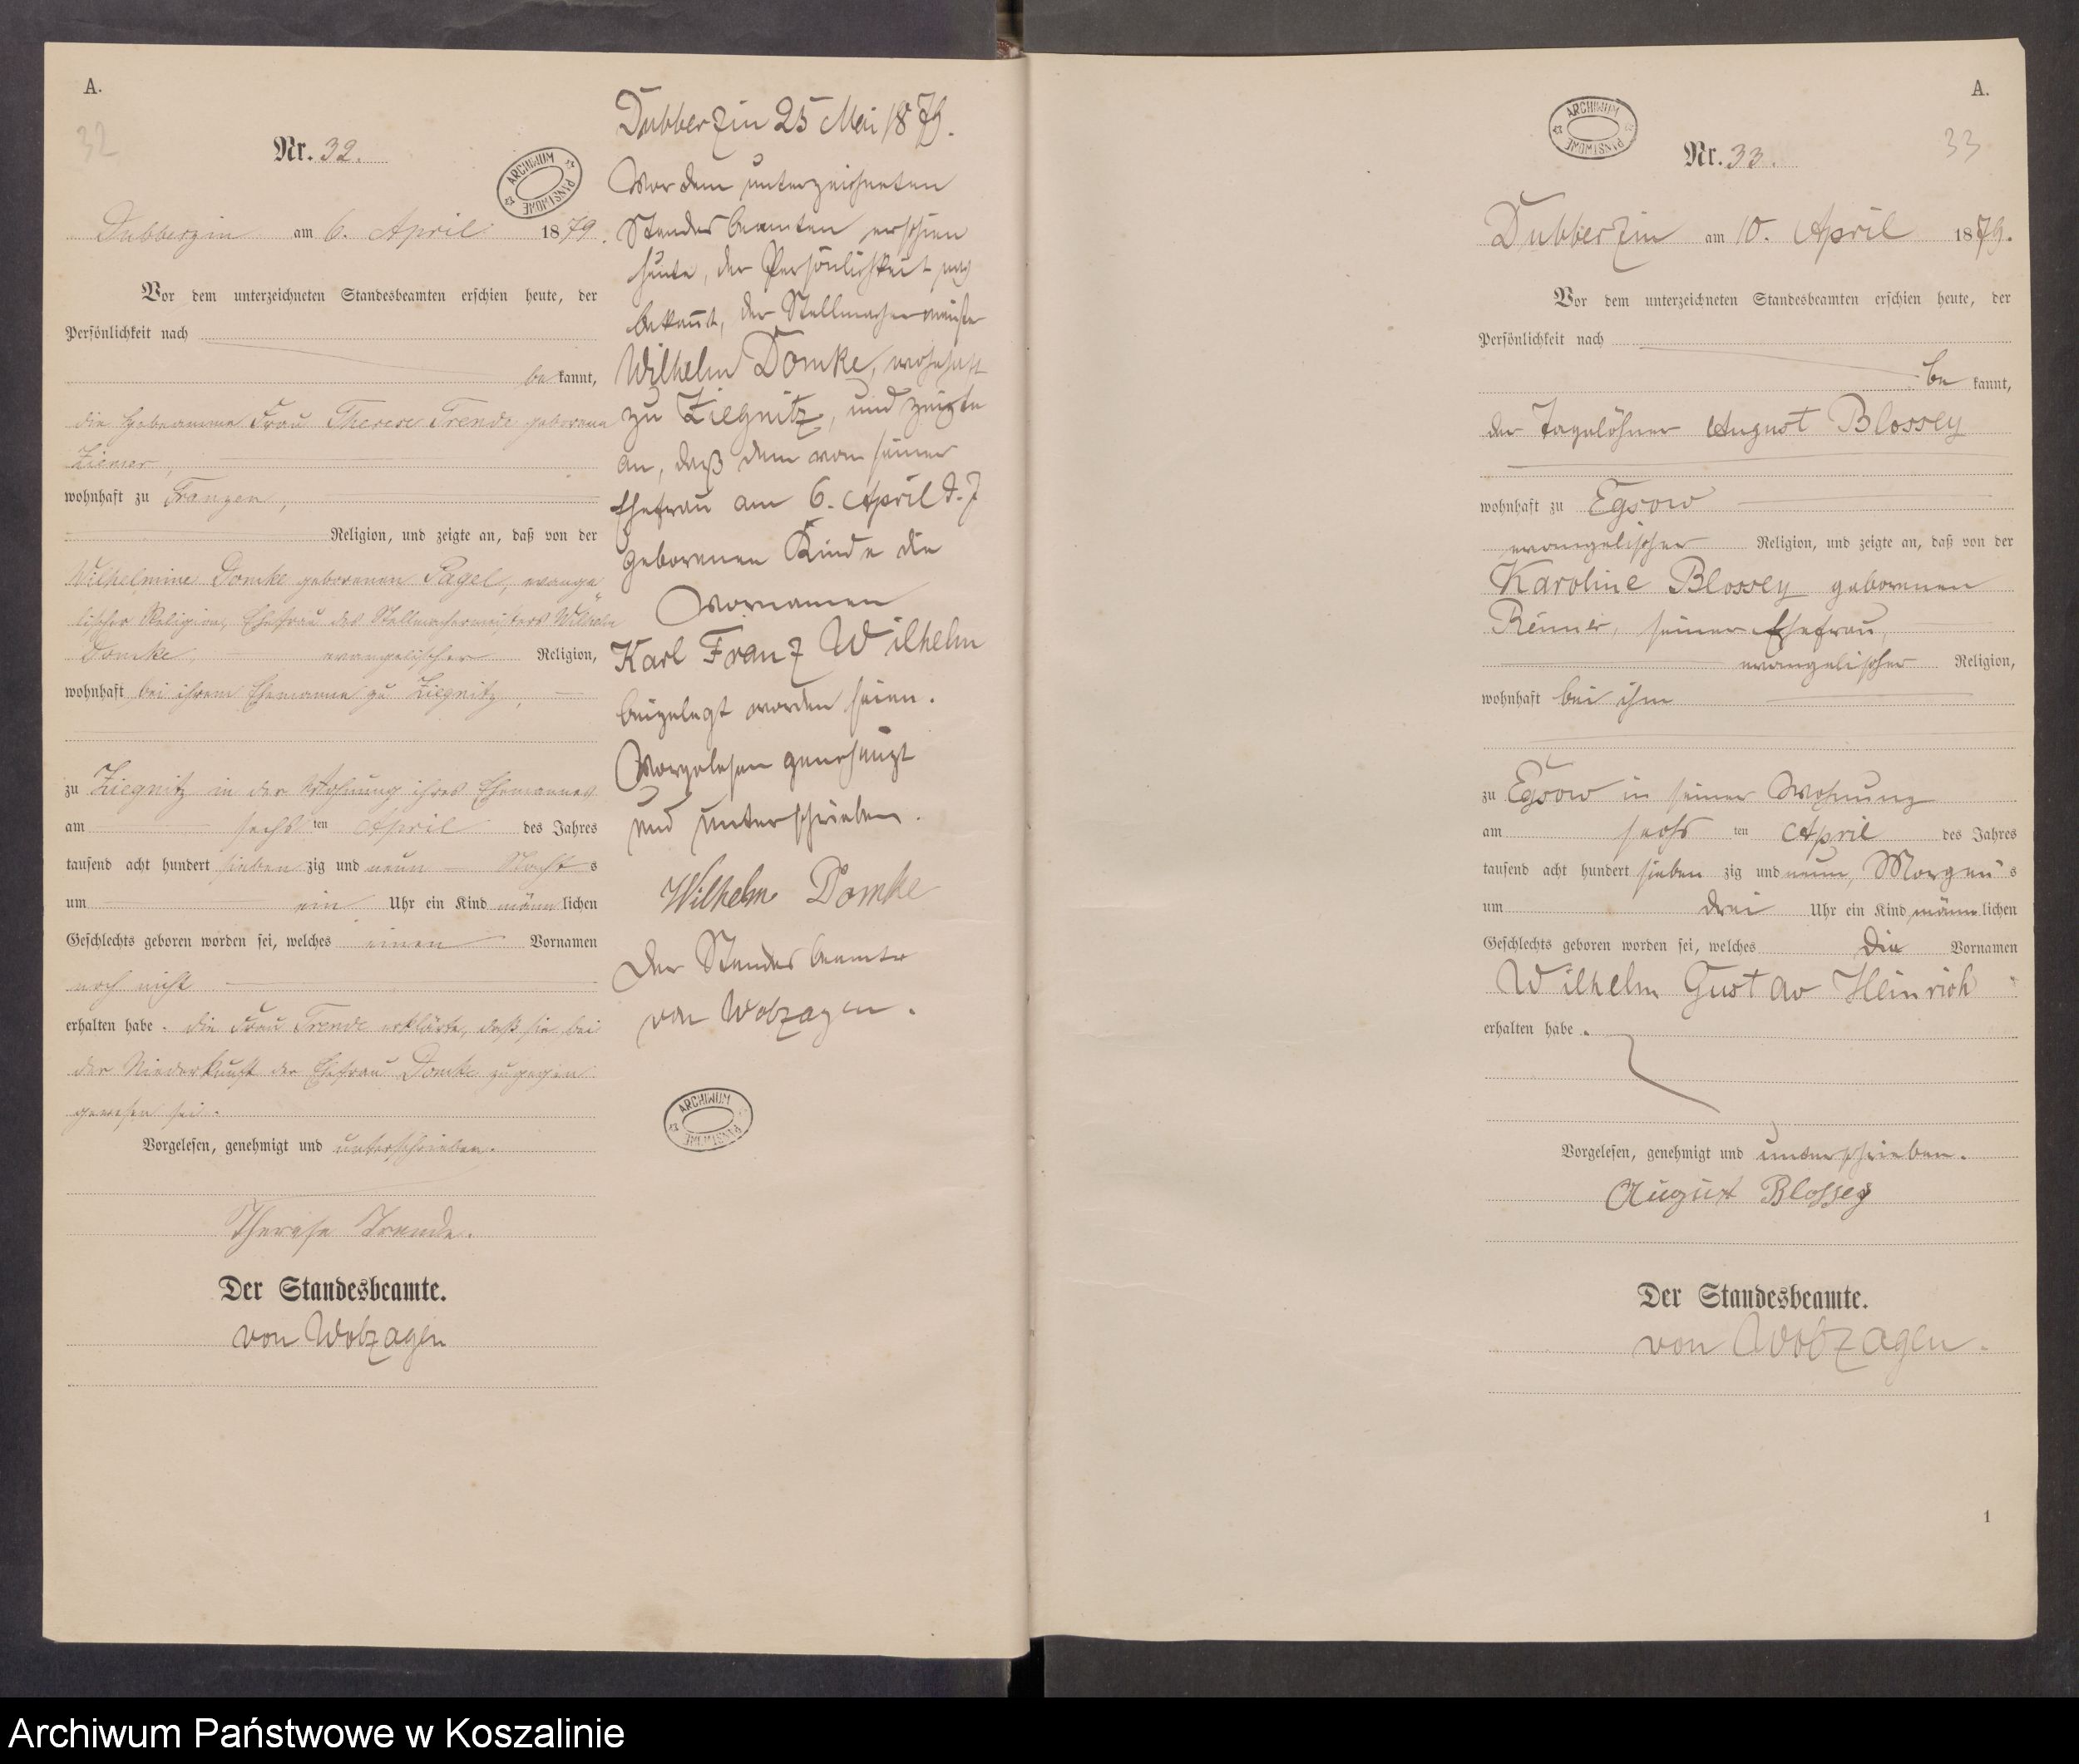 A.
32
Nr. 32.
ARCHIWUM PAŃSTWOWE
Dubberzin am 6. April 1879.
Vor dem unterzeichneten Standesbeamten erschien heute, der
Persönlichkeit nach
bekannt,
die Hebeamme Frau Therese Trende geborene
Ziemer,
wohnhaft zu Franzen,
Religion, und zeigte an, daß von der
Wilhelmine Domke geborenen Pagel, evange
lischer Religion, Ehefrau des Stellmachermeisters Wilhelm
Domke, evangelischer Religion,
wohnhaft bei ihrem Ehemanne zu Ziegnitz,
zu Ziegnitz in der Wohnung ihres Ehemannes
am sechsten April des Jahres
tausend acht hundert siebenzig und neun Nachts
um ein Uhr ein Kind männlichen
Geschlechts geboren worden sei, welches einen Vornamen
noch nicht
erhalten habe. Die Frau Trende erklärte, daß sie bei
der Niederkunft der Ehefrau Domke zugegen
gewesen sei.
Vorgelesen, genehmigt und unterschrieben.
Therese Trende.
Der Standesbeamte.
von Wobzagen
Dubberzin 25 Mai 1879.
Vor dem unterzeichneten
Standesbeamten erschien
heute, der Persönlichkeit nach
bekannt, der Stellmachermeister
Wilhelm Domke, wohnhaft
zu Ziegnitz, und zeigte
an, daß dem von seiner
Ehefrau am 6. April d. J
geborenen Kinde die
Vornamen
Karl Franz Wilhelm
beigelegt worden seien.
Vorgelesen genehmigt
und unterschrieben.
Wilhelm Domke
Der Standesbeamte
von Wobzagen.
ARCHIWUM PAŃSTWOWE
A.
ARCHIWUM PAŃSTWOWE
33
Nr. 33.
Dubberzin am 10. April 1879.
Vor dem unterzeichneten Standesbeamten erschien heute, der
Persönlichkeit nach
bekannt,
der Tagelöhner August Blossey
wohnhaft zu Egsow
evangelischer Religion, und zeigte an, daß von der
Karoline Blossey geborenen
Remer, seiner Ehefrau,
evangelischer Religion,
wohnhaft bei ihm
zu Egsow in seiner Wohnung
am sechsten April des Jahres
tausend acht hundert siebenzig und neun, Morgens
um drei Uhr ein Kind männlichen
Geschlechts geboren worden sei, welches die Vornamen
Wilhelm Gustav Heinrich
erhalten habe.
Vorgelesen, genehmigt und unterschrieben.
August Blossey
Der Standesbeamte.
von Wobzagen.
1
Archiwum Państwowe w Koszalinie